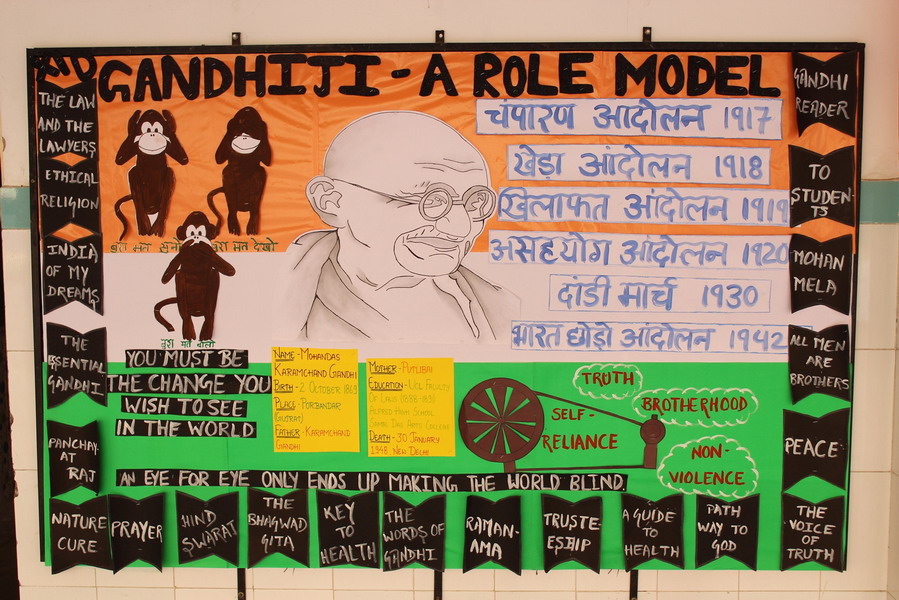 GANDHIJI - A ROLE MODEL
THE LAW
AND THE
LAWYERS
ETHICAL
RELIGION
INDIA
OF MY
DREAMS
THE
ESENTIAL
GANDHI
PANCHAY-
AT
RAJ
बुरा मत सुनो
बुरा मत देखो
बुरा मत बोलो
चंपारण आदोलन 1917
खेड़ा आंदोलन 1918
खिलाफत आंदोलन 1919
असहयोग आंदोलन 1920
दांडी मार्च 1930
भारत छोड़ो आंदोलन 1942
GANDHI
READER
TO
STUDEN-
TS
MOHAN
MELA
ALL MEN
ARE
BROTHERS
PEACE
YOU MUST BE
THE CHANGE YOU
WISH TO SEE
IN THE WORLD
NAME - MOHANDAS
KARAMCHAND GANDHI
BIRTH - 2 OCTOBER 1869
PLACE - PORBANDAR
(GUJRAT)
FATHER - KARAMCHAND
GANDHI
MOTHER - PUTLIBAI
EDUCATION - UCL FACULTY
OF LAWS (1888-1891)
ALFRED HIGH SCHOOL
SAMAL DAS ARTS COLLEGE
DEATH - 30 JANUARY
1948, NEW DELHI
SELF-
RELIANCE
TRUTH
BROTHERHOOD
NON-
VIOLENCE
AN EYE FOR EYE ONLY ENDS UP MAKING THE WORLD BLIND.
NATURE
CURE
PRAYER
HIND
SWARAT
THE
BHAGWAD
GITA
KEY
TO
HEALTH
THE
WORDS OF
GANDHI
RAMAN-
AMA
TRUSTE-
ESHIP
A GUIDE
TO
HEALTH
PATH
WAY TO
GOD
THE
VOICE OF
TRUTH